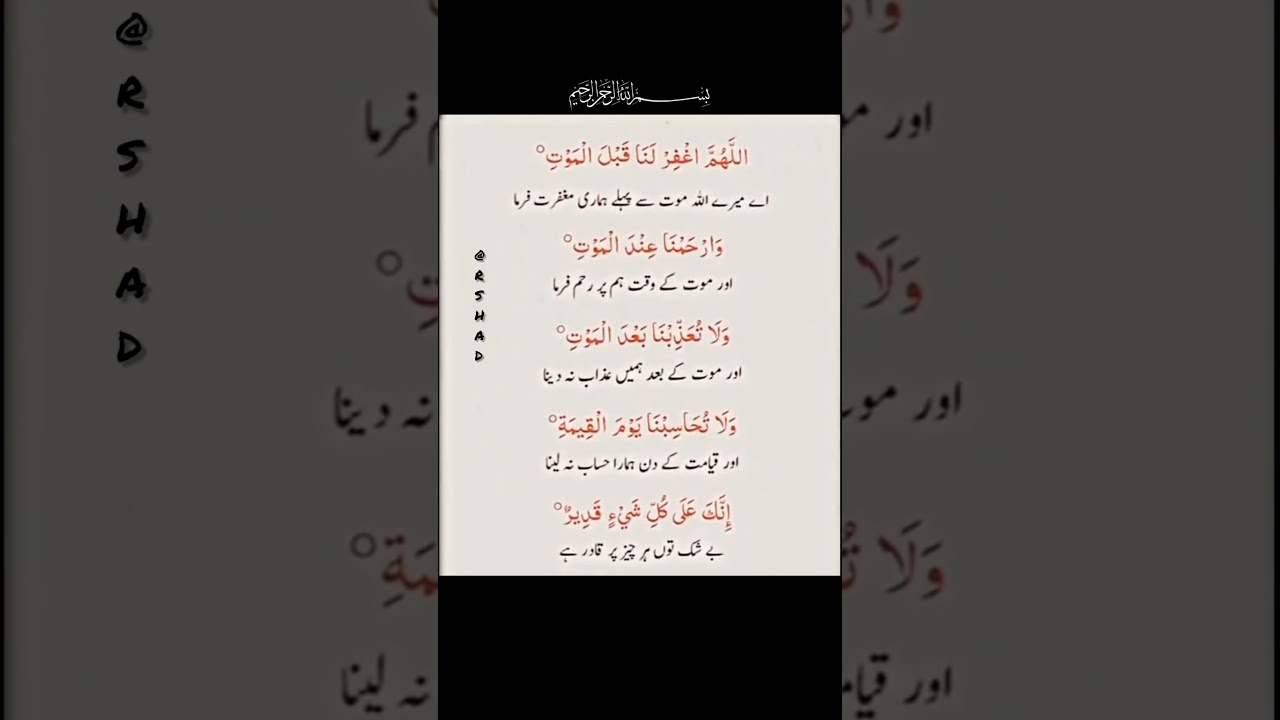 بسم الله الرحمن الرحيم
اللَّهُمَّ اغْفِرْ لَنَا قَبْلَ الْمَوْتِ○
اے میرے اللہ موت سے پہلے ہماری مغفرت فرما
وَارْحَمْنَا عِنْدَ الْمَوْتِ○
اور موت کے وقت ہم پر رحم فرما
وَلَا تُعَذِّبْنَا بَعْدَ الْمَوْتِ○
اور موت کے بعد ہمیں عذاب نہ دینا
وَلَا تُحَاسِبْنَا يَوْمَ الْقِيمَةِ○
اور قیامت کے دن ہمارا حساب نہ لینا
إِنَّكَ عَلَى كُلِّ شَيْءٍ قَدِيرٌ○
بے شک توں ہر چیز پر قادر ہے
@RSHAD
@RSHAD